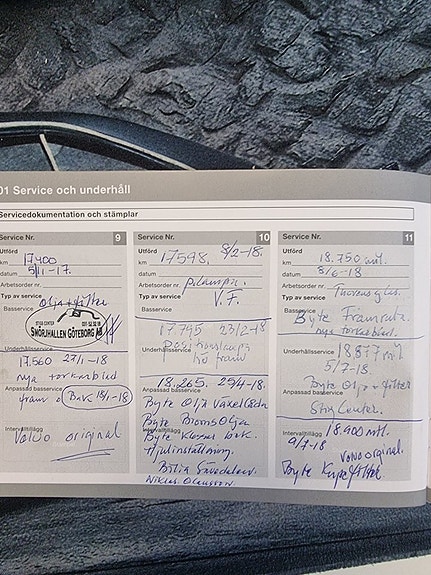 01 Service och underhåll
Servicedokumentation och stämplar
Service Nr. 9
Utförd
km 17400
datum 5/11-17.
Arbetsorder nr.
Typ av service
Olja + filter
Basservice
STYLE CENTER
SMÖRJHALLEN GÖTEBORG AB
Underhållsservice
17.560 27/1-18
nya torkarblad
Anpassad basservice
fram o Bak 18/1-18
Intervalltillägg
Volvo original
Service Nr. 10
Utförd 8/2-18.
km 17598.
datum
Arbetsorder nr.
Typ av service V.F.
Basservice
17795 23/2-18
Positionslampa
Underhållsservice
fram
18.265. 25/4-18.
Anpassad basservice
Byte Olja växellåda
Byte Bromsolja
Byte Klossar bak.
Intervalltillägg
Hjulinställning.
Bilia Sisjödalen.
Niklas
Service Nr. 11
Utförd
km 18.750 mil.
datum 8/6-18
Arbetsorder nr.
Typ av service
Byte Framruta
Basservice
nya torkarblad.
18877 mil
Underhållsservice
5/7-18
Byte olja + filter
Anpassad basservice
Intervalltillägg 18.900 mil.
9/7-18 Volvo original.
Byte Kupefilter